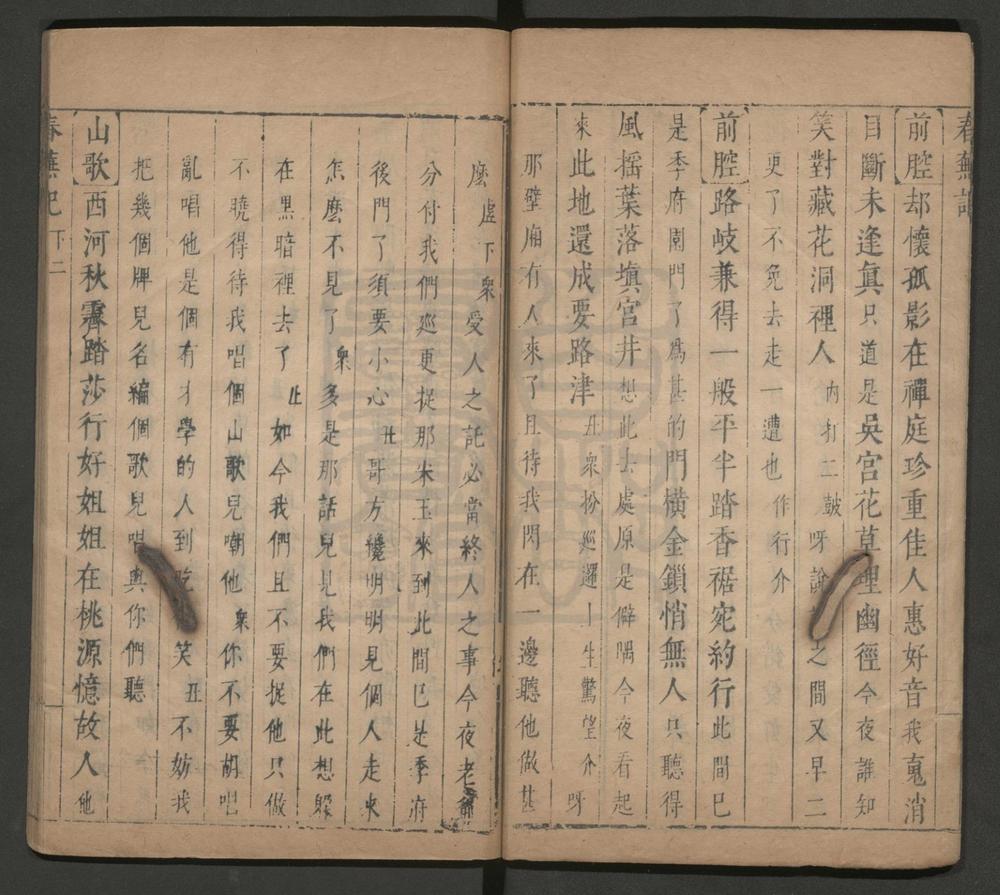 春蕪記
【前腔】却懷孤影在禪庭珍重佳人惠好音我䰟消
目斷未逢眞只道是吳宮花草埋幽徑今夜誰知
笑對藏花洞裡人内打二鼓呀說之間又早二
更了不免去走一遭也作行介
【前腔】路岐兼得一般平半踏香裾宛約行此間已
是季府園門了爲甚的門橫金鎖悄無人只聽得
風搖葉落塡宮井想此去處原是僻隅今夜看起
來此地還成要路津丑衆扮巡邏上生驚望介呀
那壁廂有人來了且待我閃在一邊聽他做甚
麽虛下衆受人之託必當終人之事今夜老爺
分付我們巡更捉那宋玉來到此間已是季府
後門了須要小心丑哥方纔明明見個人走來
怎麽不見了衆多是那話兒見我們在此想躱
在黑暗裡去了丑如今我們且不要捉他只做
不曉得待我唱個山歌兒嘲他衆你不要胡唱
亂唱他是個有才學的人到吃笑丑不妨我
把幾個牌兒名編個歌兒唱與你們聽
【山歌】西河秋霽踏莎行好姐姐在桃源憶故人他
春蕪記 下 二